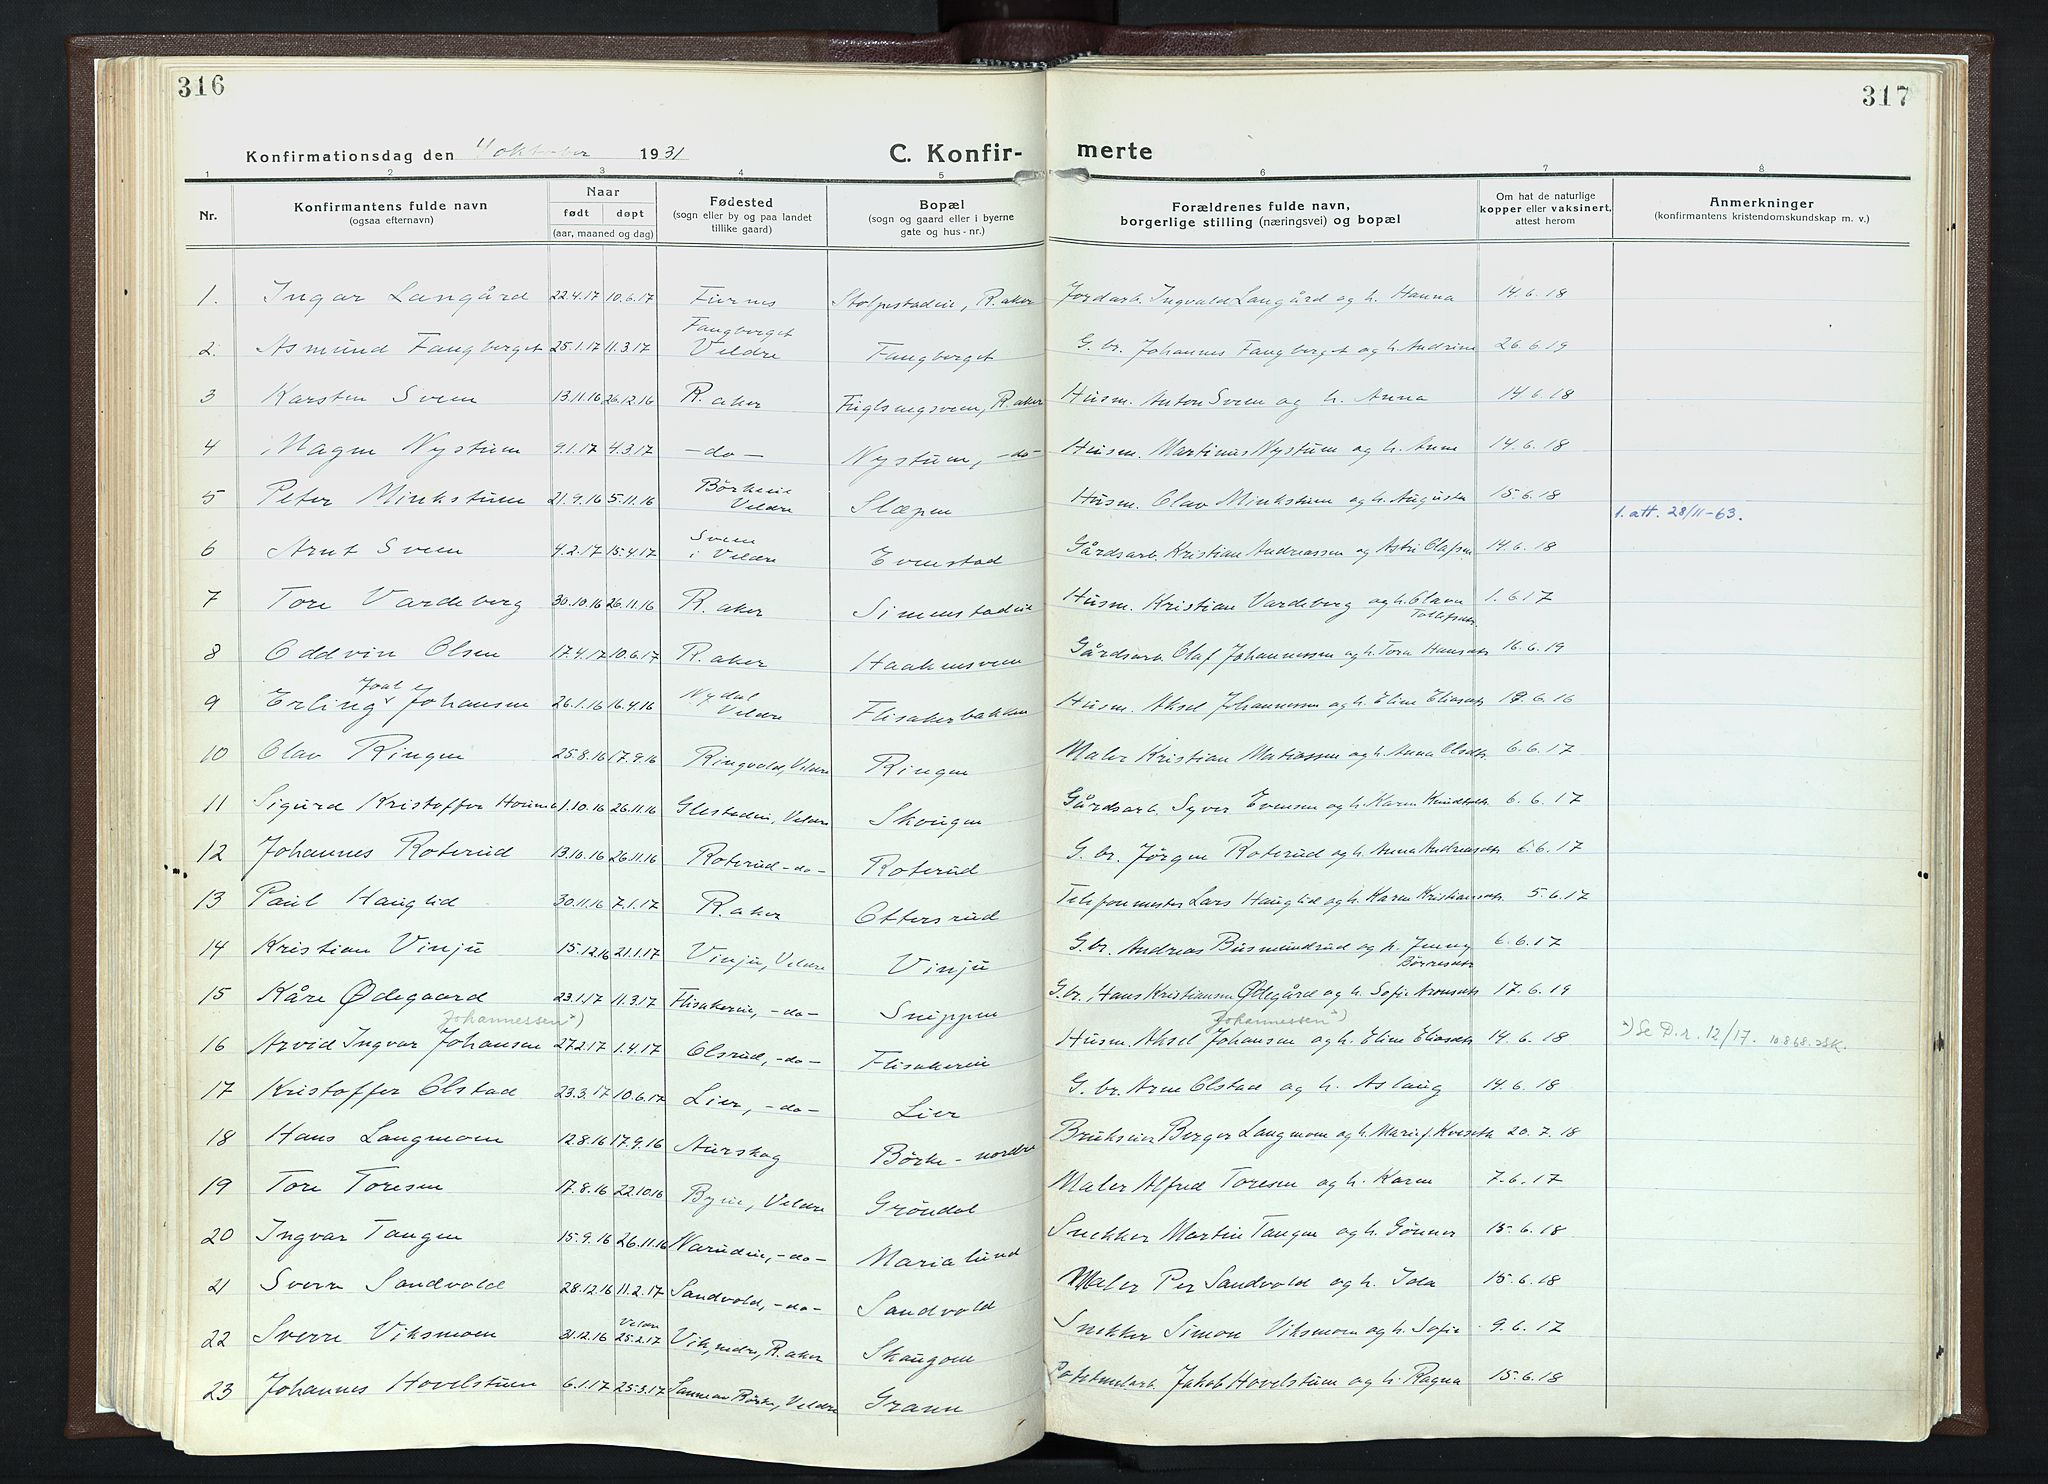 316
317
Konfirmationsdag den 4 oktober 1931
C. Konfir-
merte
1 2 3 4 5 6 7 8
Nr.
Konfirmantens fulde navn
(ogsaa efternavn)
Naar
født døpt
(aar, maaned og dag)
Fødested
(sogn eller by og paa landet
tillike gaard)
Bopæl
(sogn og gaard eller i byerne
gate og hus-nr.)
Forældrenes fulde navn,
borgerlige stilling (næringsvei) og bopæl
Om hat de naturlige
kopper eller vaksinert,
attest herom
Anmerkninger
(konfirmantens kristendomskundskap m. v.)
1. Ingar Langård 22.4.17 10.6.17 Furnes Stolpestadeie, R.aker Jordarb. Ingvald Langård og h. Hanna 14.6.18
Fangberget
2. Asmund Fangberget 25.1.17 11.3.17 Veldre Fangberget G.br. Johannes Fangberget og h. Andrine 26.6.19
3 Karsten Sveen 13.11.16 26.12.16 R.aker Fuglsengsveen, R.aker Husm. Anton Sveen og h. Anna 14.6.18
4 Magne Nystuen 9.1.17 4.3.17 -do- Nystuen, -do- Husm. Martinus Nystuen og h. Anne 14.6.18
Børkeeie
5 Peter Minkstuen 21.9.16 5.11.16 Veldre Slæpen Husm. Olav Minkstuen og h. Augusta 15.6.18
1. att. 28/11-63.
Sveen
6 Arnt Sveen 4.2.17 15.4.17 i Veldre Evenstad Gårdsarb. Kristian Andreassen og Astri Olafsen 14.6.18
7 Tore Vardeberg 30.10.16 26.11.16 R.aker Simenstadeie Husm. Kristian Vardeberg og h. Olava 1.6.17
Tollefsdtr.
8 Oddvin Olsen 17.4.17 10.6.17 R.aker Haakensveen Gårdsarb. Olaf Johannessen og h. Tora Hansdtr 16.6.19
Joal Nydal
9 Erling Johansen 26.1.16 16.4.16 Veldre Flisakerbakken Husm. Aksel Johannessen og h. Eline Eliasdtr 19.6.16
10 Olav Ringen 25.8.16 17.9.16 Ringvold, Veldre Ringen Maler Kristian Matiassen og h. Anna Olsdtr. 6.6.17
11 Sigurd Kristoffer 1.10.16 26.11.16 Glestadeie, Veldre Skougen Gårdsarb. Syver Evensen og h. Karen Knudsdtr 6.6.17
12 Johannes Roterud 13.10.16 26.11.16 Roterud -do- Roterud G.br. Jørgen Roterud og h. Anna Andreasdtr 6.6.17
13 Paul Hauglid 30.11.16 7.1.17 R.aker Ottersrud Telefonmester Lars Hauglid og h. Karen Kristiansdtr 5.6.17
14 Kristian Vinju 15.12.16 21.1.17 Vinju, Veldre Vinju G.br. Andreas Busmundrud og h. Jenny 6.6.17
Børresdtr
15 Kåre Ødegaard 23.1.17 11.3.17 Flisakereie, -do- Snippen G.br. Hans Kristiansen Ødegård og h. Sofie Aronsdtr 17.6.19
Johannessen x) Johannessen x)
16 Arvid Ingvar Johansen 27.2.17 1.4.17 Olsrud, -do- Flisakereie Husm. Aksel Johansen og h. Eline Eliasdtr 14.6.18 x) Se D.r. 12/17. 10.8.68.
17 Kristoffer Olstad 23.3.17 10.6.17 Lier, -do- Lier G.br. Arne Olstad og h. Aslaug 14.6.18
18 Hans Langmoen 12.8.16 17.9.16 Aurskog Børke - nordre Brukseier Berger Langmoen og h. Marie f. Kveseth 20.7.18
19 Tore Toresen 17.8.16 22.10.16 Byeie, Veldre Grøndal Maler Alfred Toresen og h. Karen 7.6.17
20 Ingvar Tangen 15.9.16 26.11.16 Narudeie, -do- Marialund Snekker Martin Tangen og h. Gønner 15.6.18
21 Sverre Sandvold 28.12.16 11.2.17 Sandvold, -do- Sandvold Maler Per Sandvold og h. Ida 15.6.18
Veldre
22 Sverre Viksmoen 31.12.16 25.2.17 Vik, nedre, R.aker Skaugom Snekker Simon Viksmoen og h. Sofie 9.6.17
23 Johannes Hovelstuen 6.1.17 25.3.17 Børke, Veldre Grann Jakob Hovelstuen og h. Ragna 15.6.18